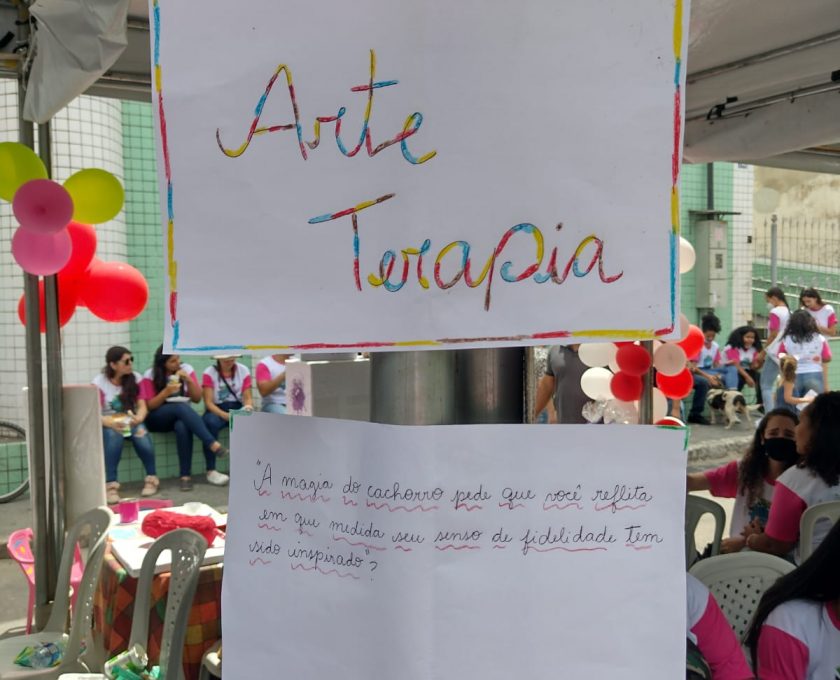 Arte
Terapia
"A magia do cachorro pede que você reflita
em que medida seu senso de fidelidade tem
sido inspirado"?